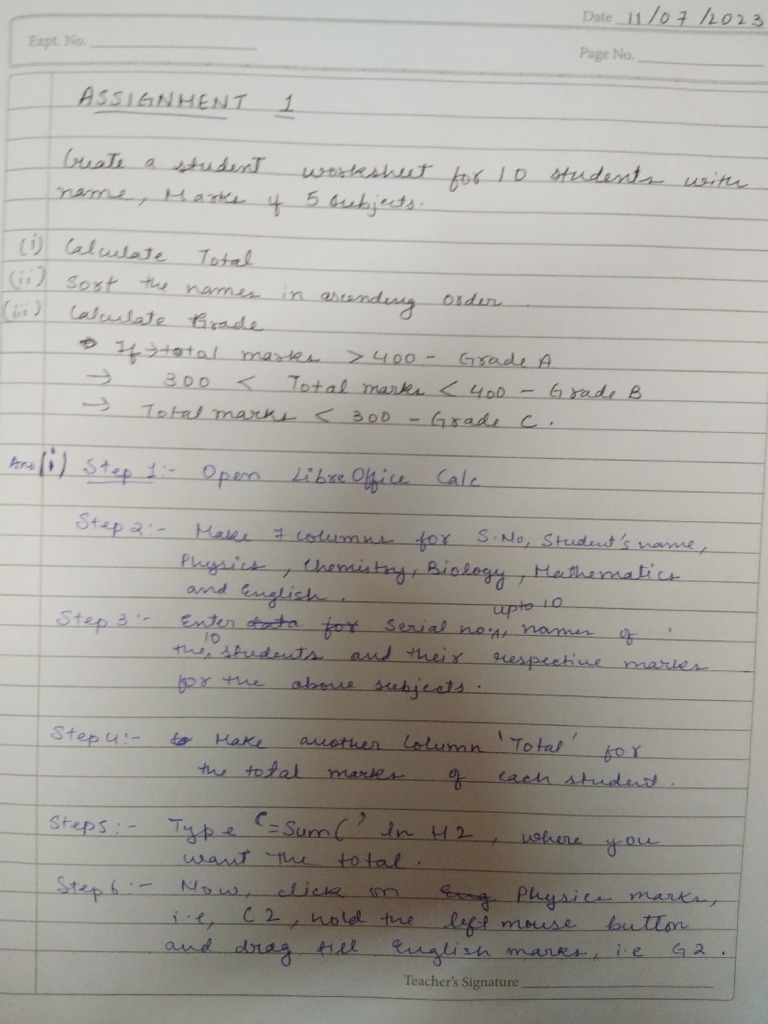 Date 11/07/2023
Expt. No.
Page No.
ASSIGNMENT 1
Create a student worksheet for 10 students with
name, Marks of 5 subjects.
(i) Calculate Total
(ii) Sort the names in ascending order
(iii) Calculate Grade
→ If total marks > 400 - Grade A
→ 300 < Total marks < 400 - Grade B
→ Total marks < 300 - Grade C.
Ans (i) Step 1:- Open LibreOffice Calc
Step 2:- Make 7 columns for S.No, Student's name,
Physics, Chemistry, Biology, Mathematics
and English.
Step 3:- Enter data for serial no. upto 10, names of
the 10 students and their respective marks
for the above subjects.
Step 4:- to Make another column 'Total' for
the total marks of each student.
Step 5:- Type '=Sum(' In H2, where you
want the total.
Step 6:- Now, click on Eng Physics marks,
i.e, C2, hold the left mouse button
and drag till English marks, i.e G2.
Teacher's Signature